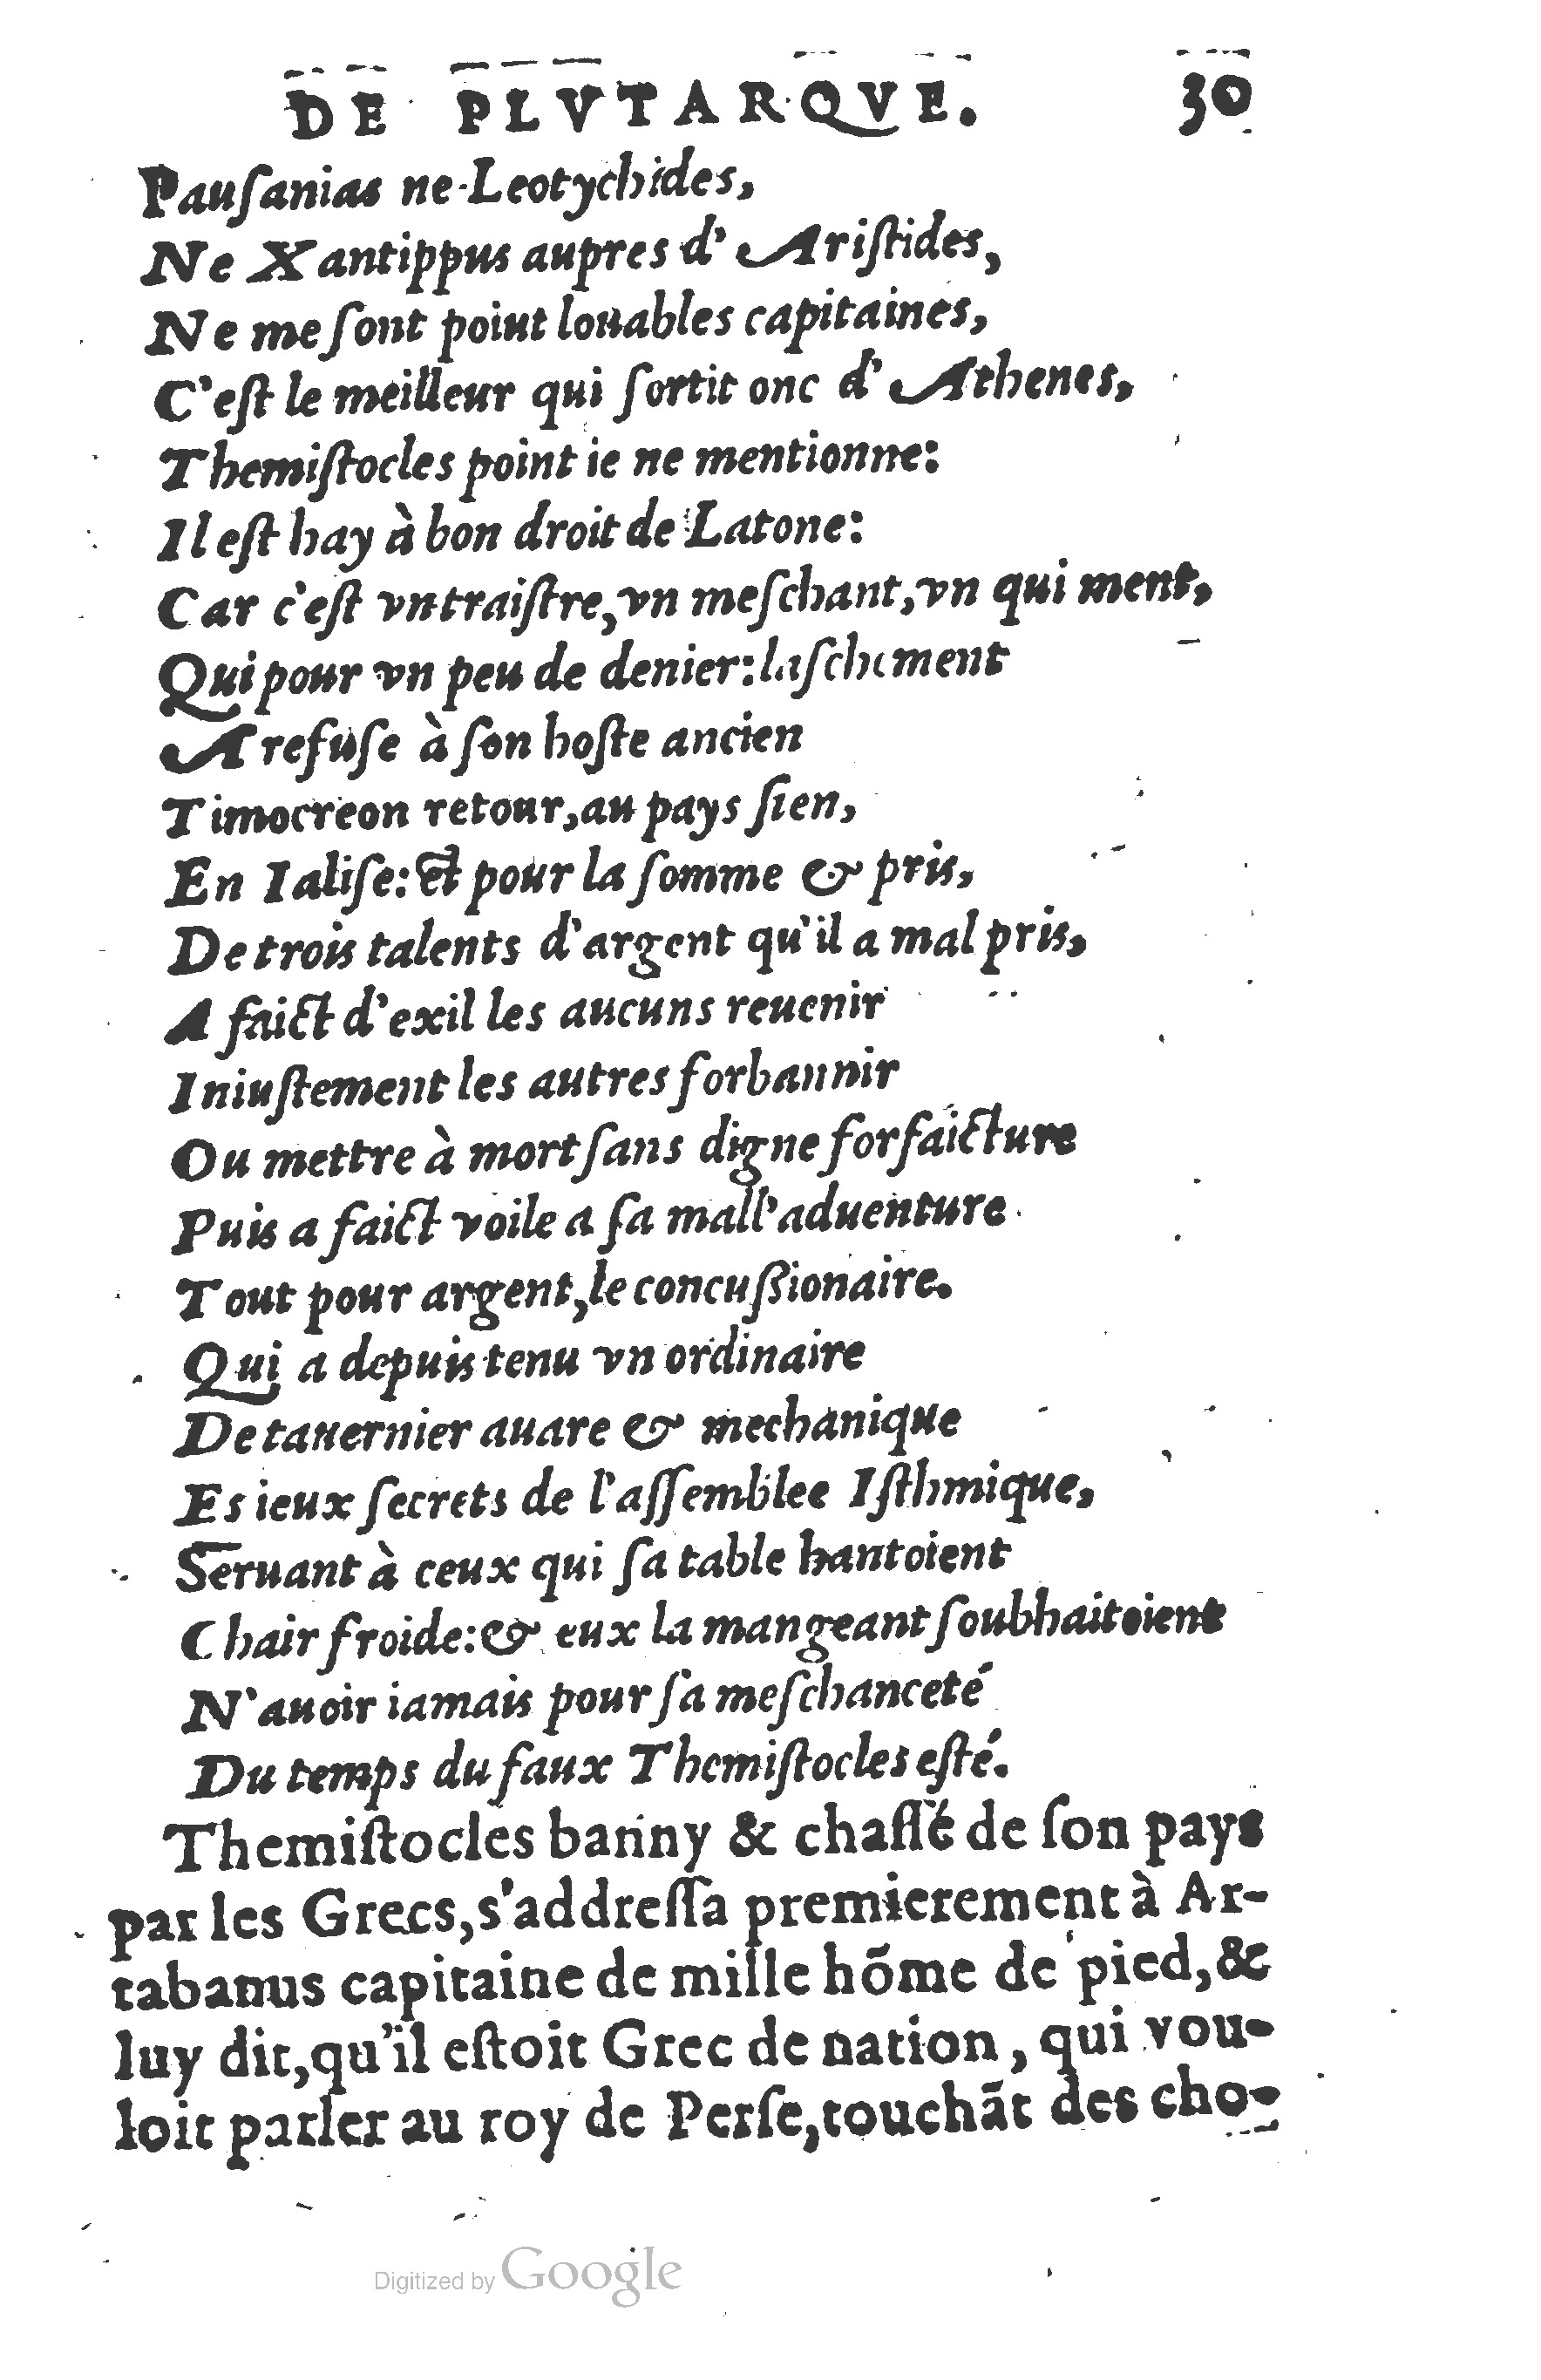 DE PLVTARQVE. 30
Pauſanias ne Leotychides,
Ne Xantippus aupres d'Ariſtides,
Ne me ſont poiut louables capitaines,
C'eſt le meilleur qui ſortit onc d'Athenes,
Themiſtocles point ie ne mentionne:
Il eſt hay à bon droit de Latone:
Car c'eſt vn traiſtre, vn meſchant, vn qui ment,
Qui pour vn peu de denier: laſchement
A refuſe à ſon hoſte ancien
Timocreon retour, au pays ſien,
En Ialiſe: et pour la ſomme & pris,
De trois talents d'argent qu'il a mal pris,
A faict d'exil les aucuns reuenir
Iniuſtement les autres forbannir
Ou mettre à mort ſans digne forfaicture
Puis a faict voile a ſa mall'aduenture
Tout pour argent, le concuſsionaire.
Qui a depuis tenu vn ordinaire
De tauernier auare & mechanique
Es ieux ſecrets de l'aſſemblee Iſthmique,
Seruant à ceux qui ſa table hantoient
Chair froide: & eux la mangeant ſoubhaitoient
N'auoir iamais pour ſa meſchanceté
Du temps du faux Themiſtocles eſté.
Themiſtocles banny & chaſſé de ſon pays
par les Grecs, s'addreſſa premierement à Ar-
tabanus capitaine de mille hõme de pied, &
luy dit, qu'il eſtoit Grec de nation, qui vou-
loit parler au roy de Perſe, touchãt des cho-
Digitized by Google